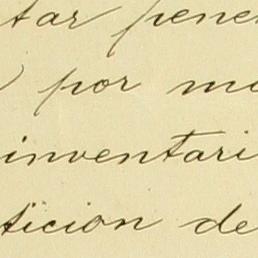 tar pene
por me
inventari
ticion de